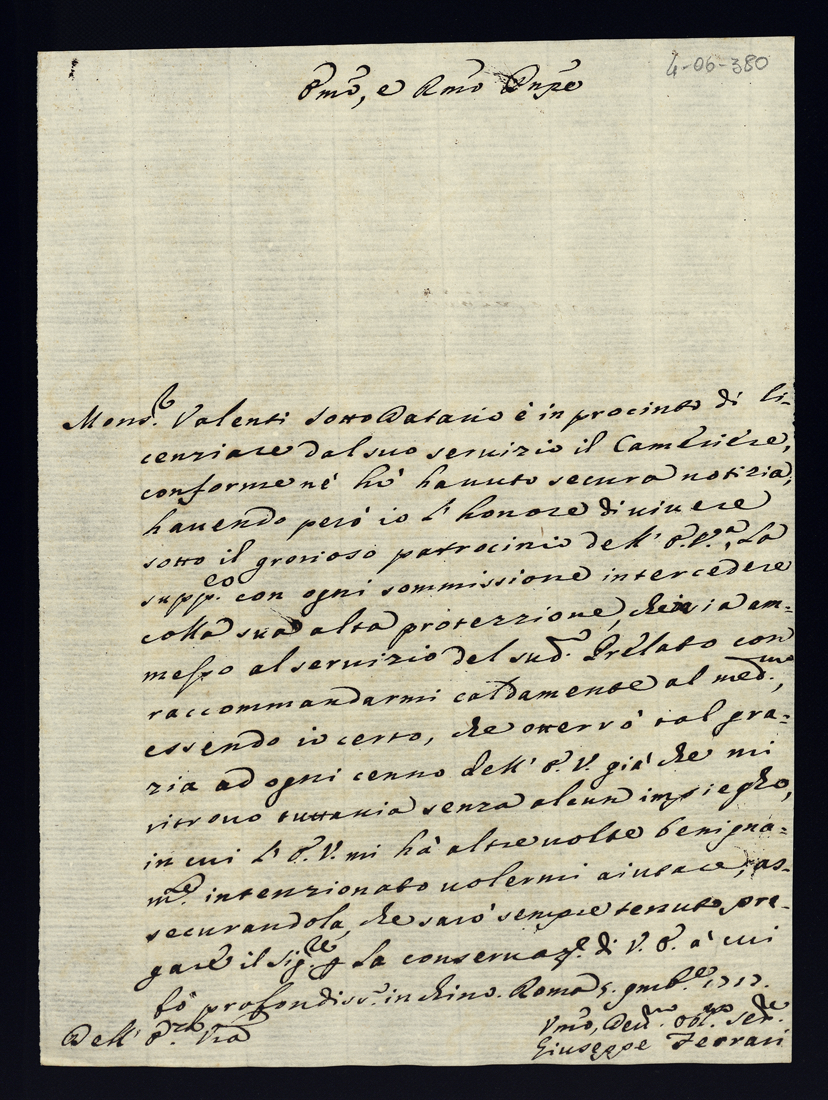 4-06-380
Emo, e Rmo Pnpe
Monsr. Valenti sotto Datario è in procinto di li-
cenziare dal suo seruizio il Camériére,
conforme né hò hauuto secura notizia,
hauendo però io l'honore di uiuere
sotto il grorioso patrocinio dell'E.V.a, La
suppco. con ogni sommissione intercedere
colla sua alta protezzione, che sia am-
messo al seruizio del sud. Prélato con
raccommandarmi caldamente al medmo,
essendo io certo, che otterrò tal gra-
zia ad ogni cenno dell'E.V. già che mi
ritrouo tuttauia senza alcun impiegho,
in cui l'E.V. mi hà altre uolte benigna-
mte. intenzionato uolermi aiutare, as-
securandola, che sarò sempre tenuto pre-
gare il Sigre. p la conseruaze. di V.E. à cui
fò profondiss. inchino. Roma 5. gmbre
Dell'Eza Vra
Vmo, Deumo. obmo. Serre.
Giuseppe Ferrari